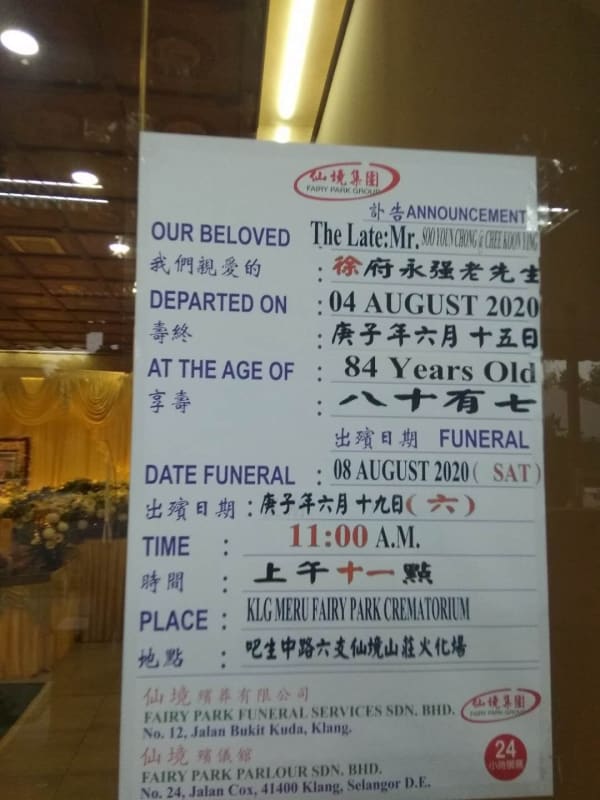 仙境集團
FAIRY PARK GROUP
訃告ANNOUNCEMENT
OUR BELOVED The Late:Mr. SOO YOUN CHONG @ CHEE KOON YING
我們親愛的 : 徐府永强老先生
DEPARTED ON : 04 AUGUST 2020
壽終 : 庚子年六月十五日
AT THE AGE OF : 84 Years Old
享壽 : 八十有七
出殯日期 FUNERAL
DATE FUNERAL : 08 AUGUST 2020 ( SAT )
出殯日期 : 庚子年六月十九日( 六 )
TIME : 11:00 A.M.
時間 : 上午十一點
PLACE : KLG MERU FAIRY PARK CREMATORIUM
地點 : 吧生中路六支仙境山莊火化場
仙境 殯葬有限公司
FAIRY PARK FUNERAL SERVICES SDN. BHD.
No. 12, Jalan Bukit Kuda, Klang.
仙境集團
FAIRY PARK GROUP
仙境 殯儀館
FAIRY PARK PARLOUR SDN. BHD.
No. 24, Jalan Cox, 41400 Klang, Selangor D.E.
24
小時服務